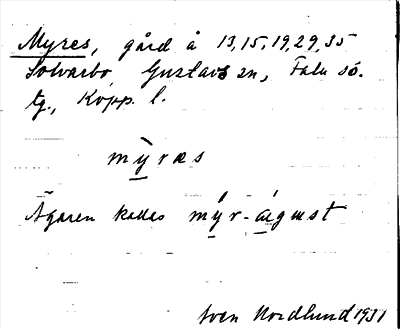 Myres, gård å 13, 15, 19, 29, 35
Solvarbo, Gustavs sn, Falu sö.
tg., Kopp. l.
mỳræs
Ägaren kallas mýr-águst
Sven Nordlund 1931